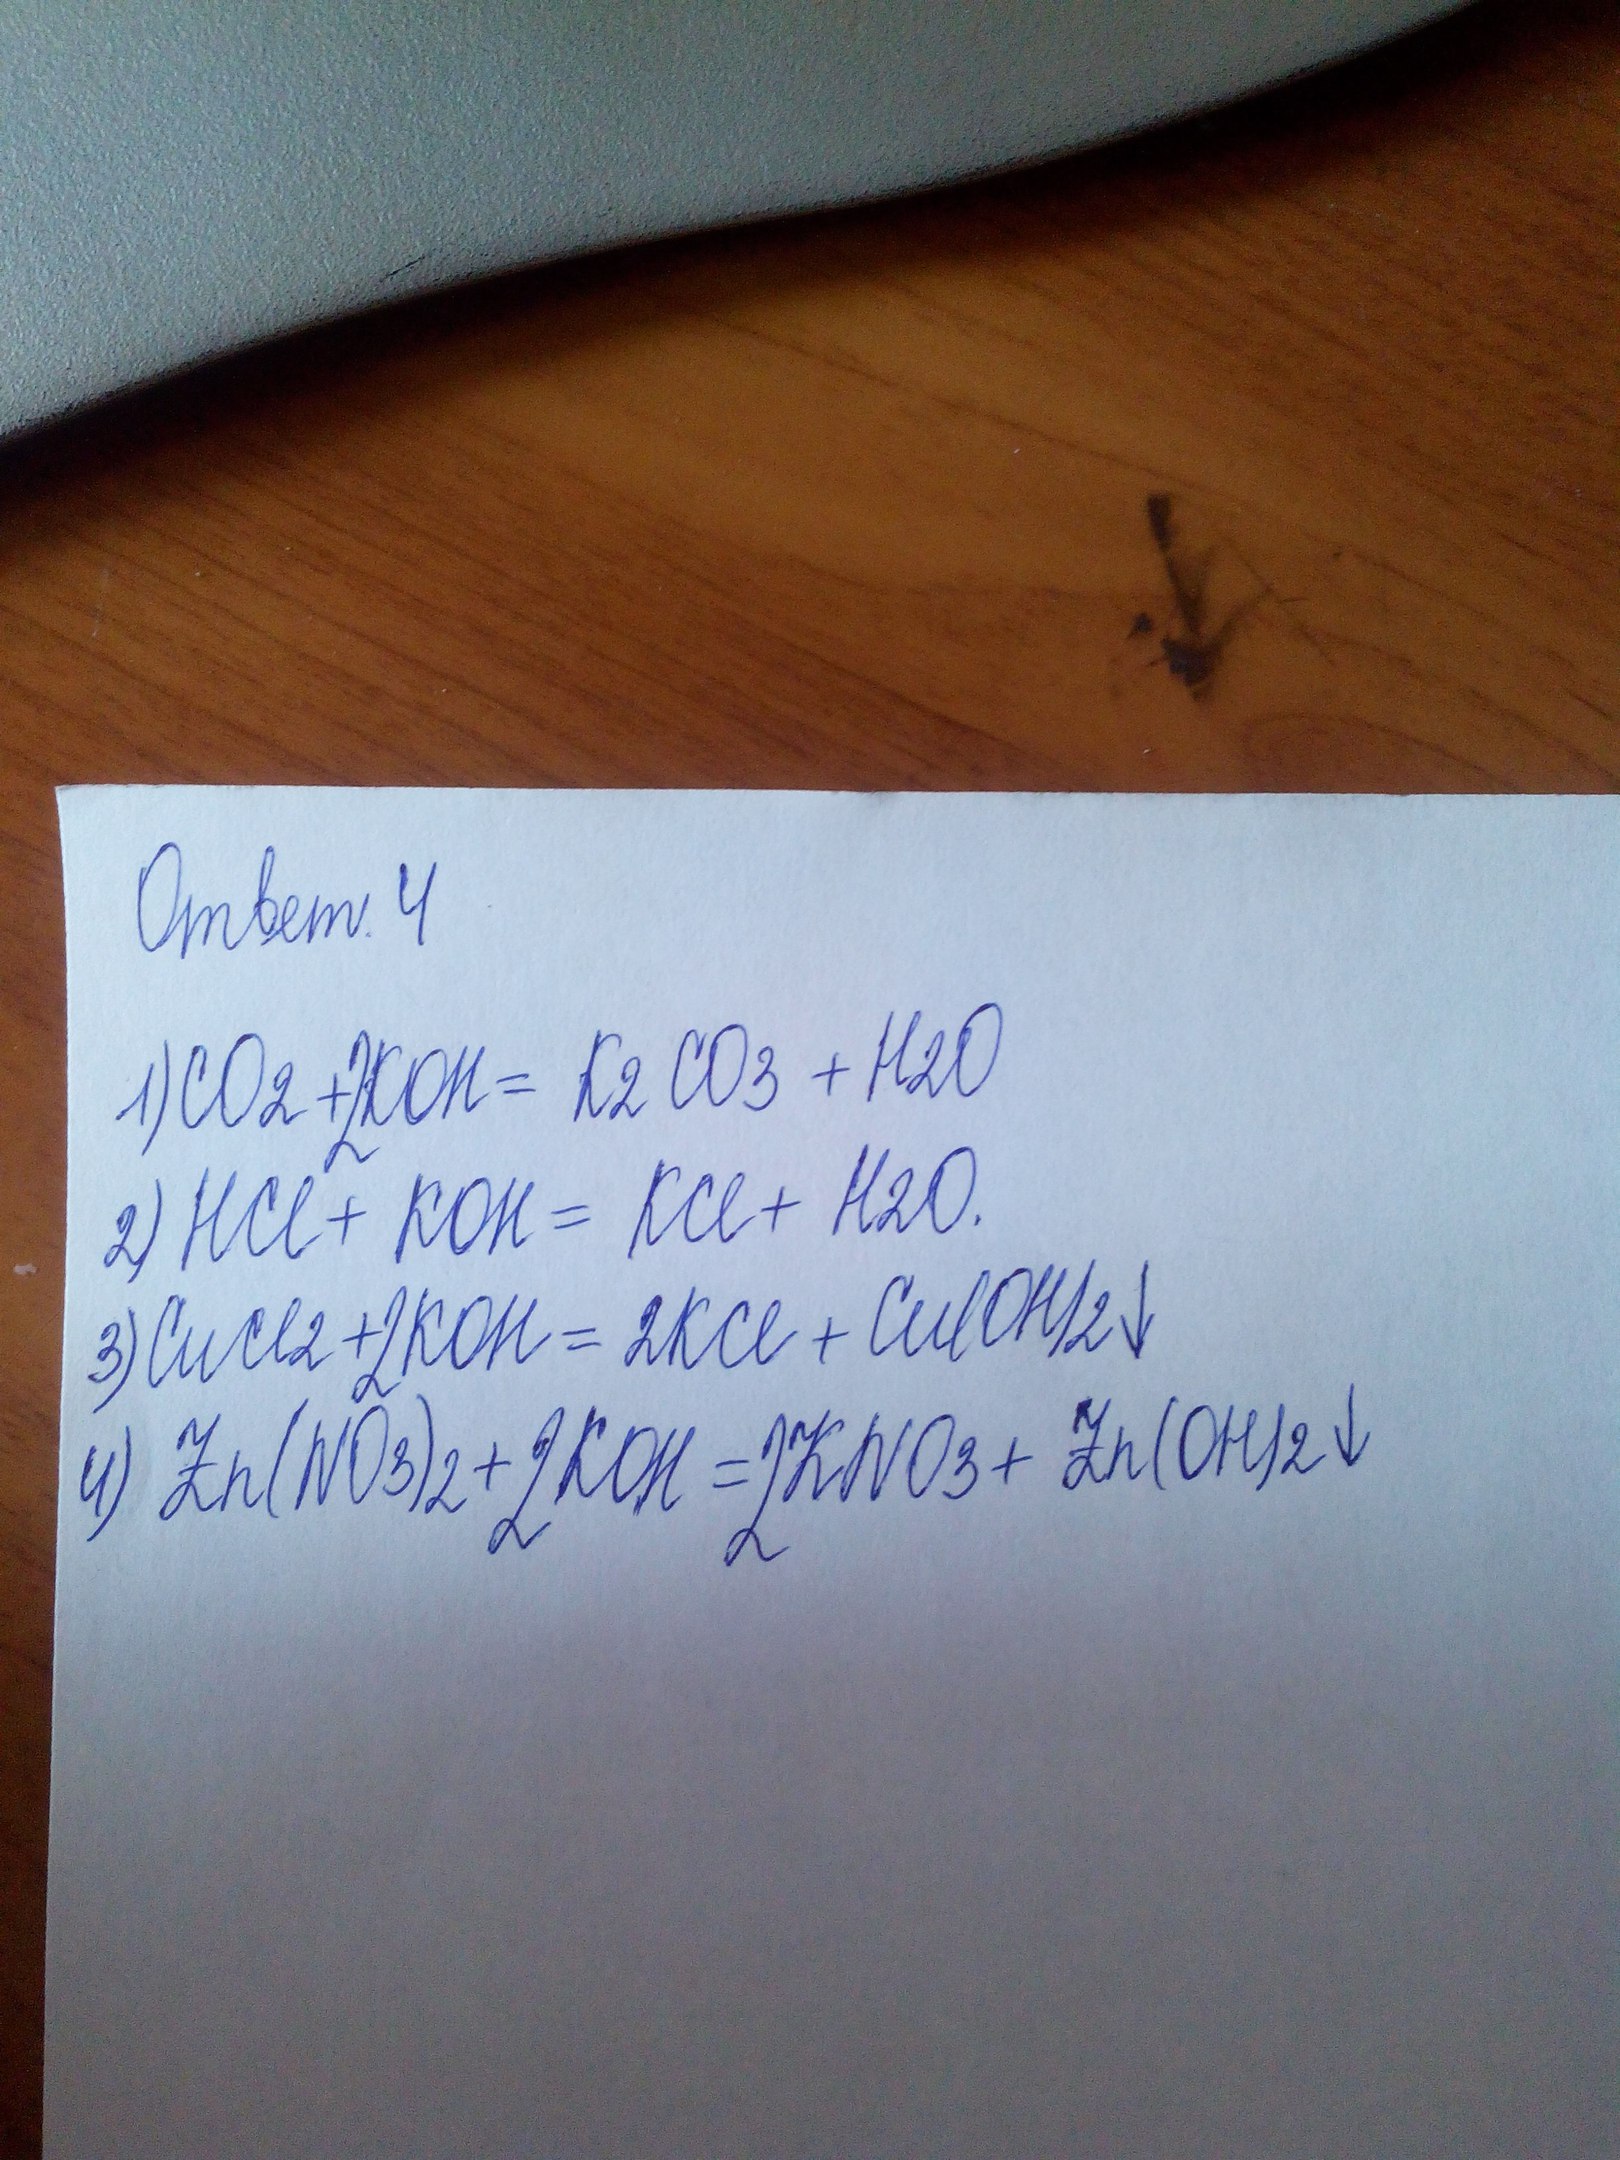 Ответ. 4
1) CO2 + 2KOH = K2CO3 + H2O
2) HCl + KOH = KCl + H2O.
3) CuCl2 + 2KOH = 2KCl + Cu(OH)2↓
4) Zn(NO3)2 + 2KOH = 2KNO3 + Zn(OH)2↓